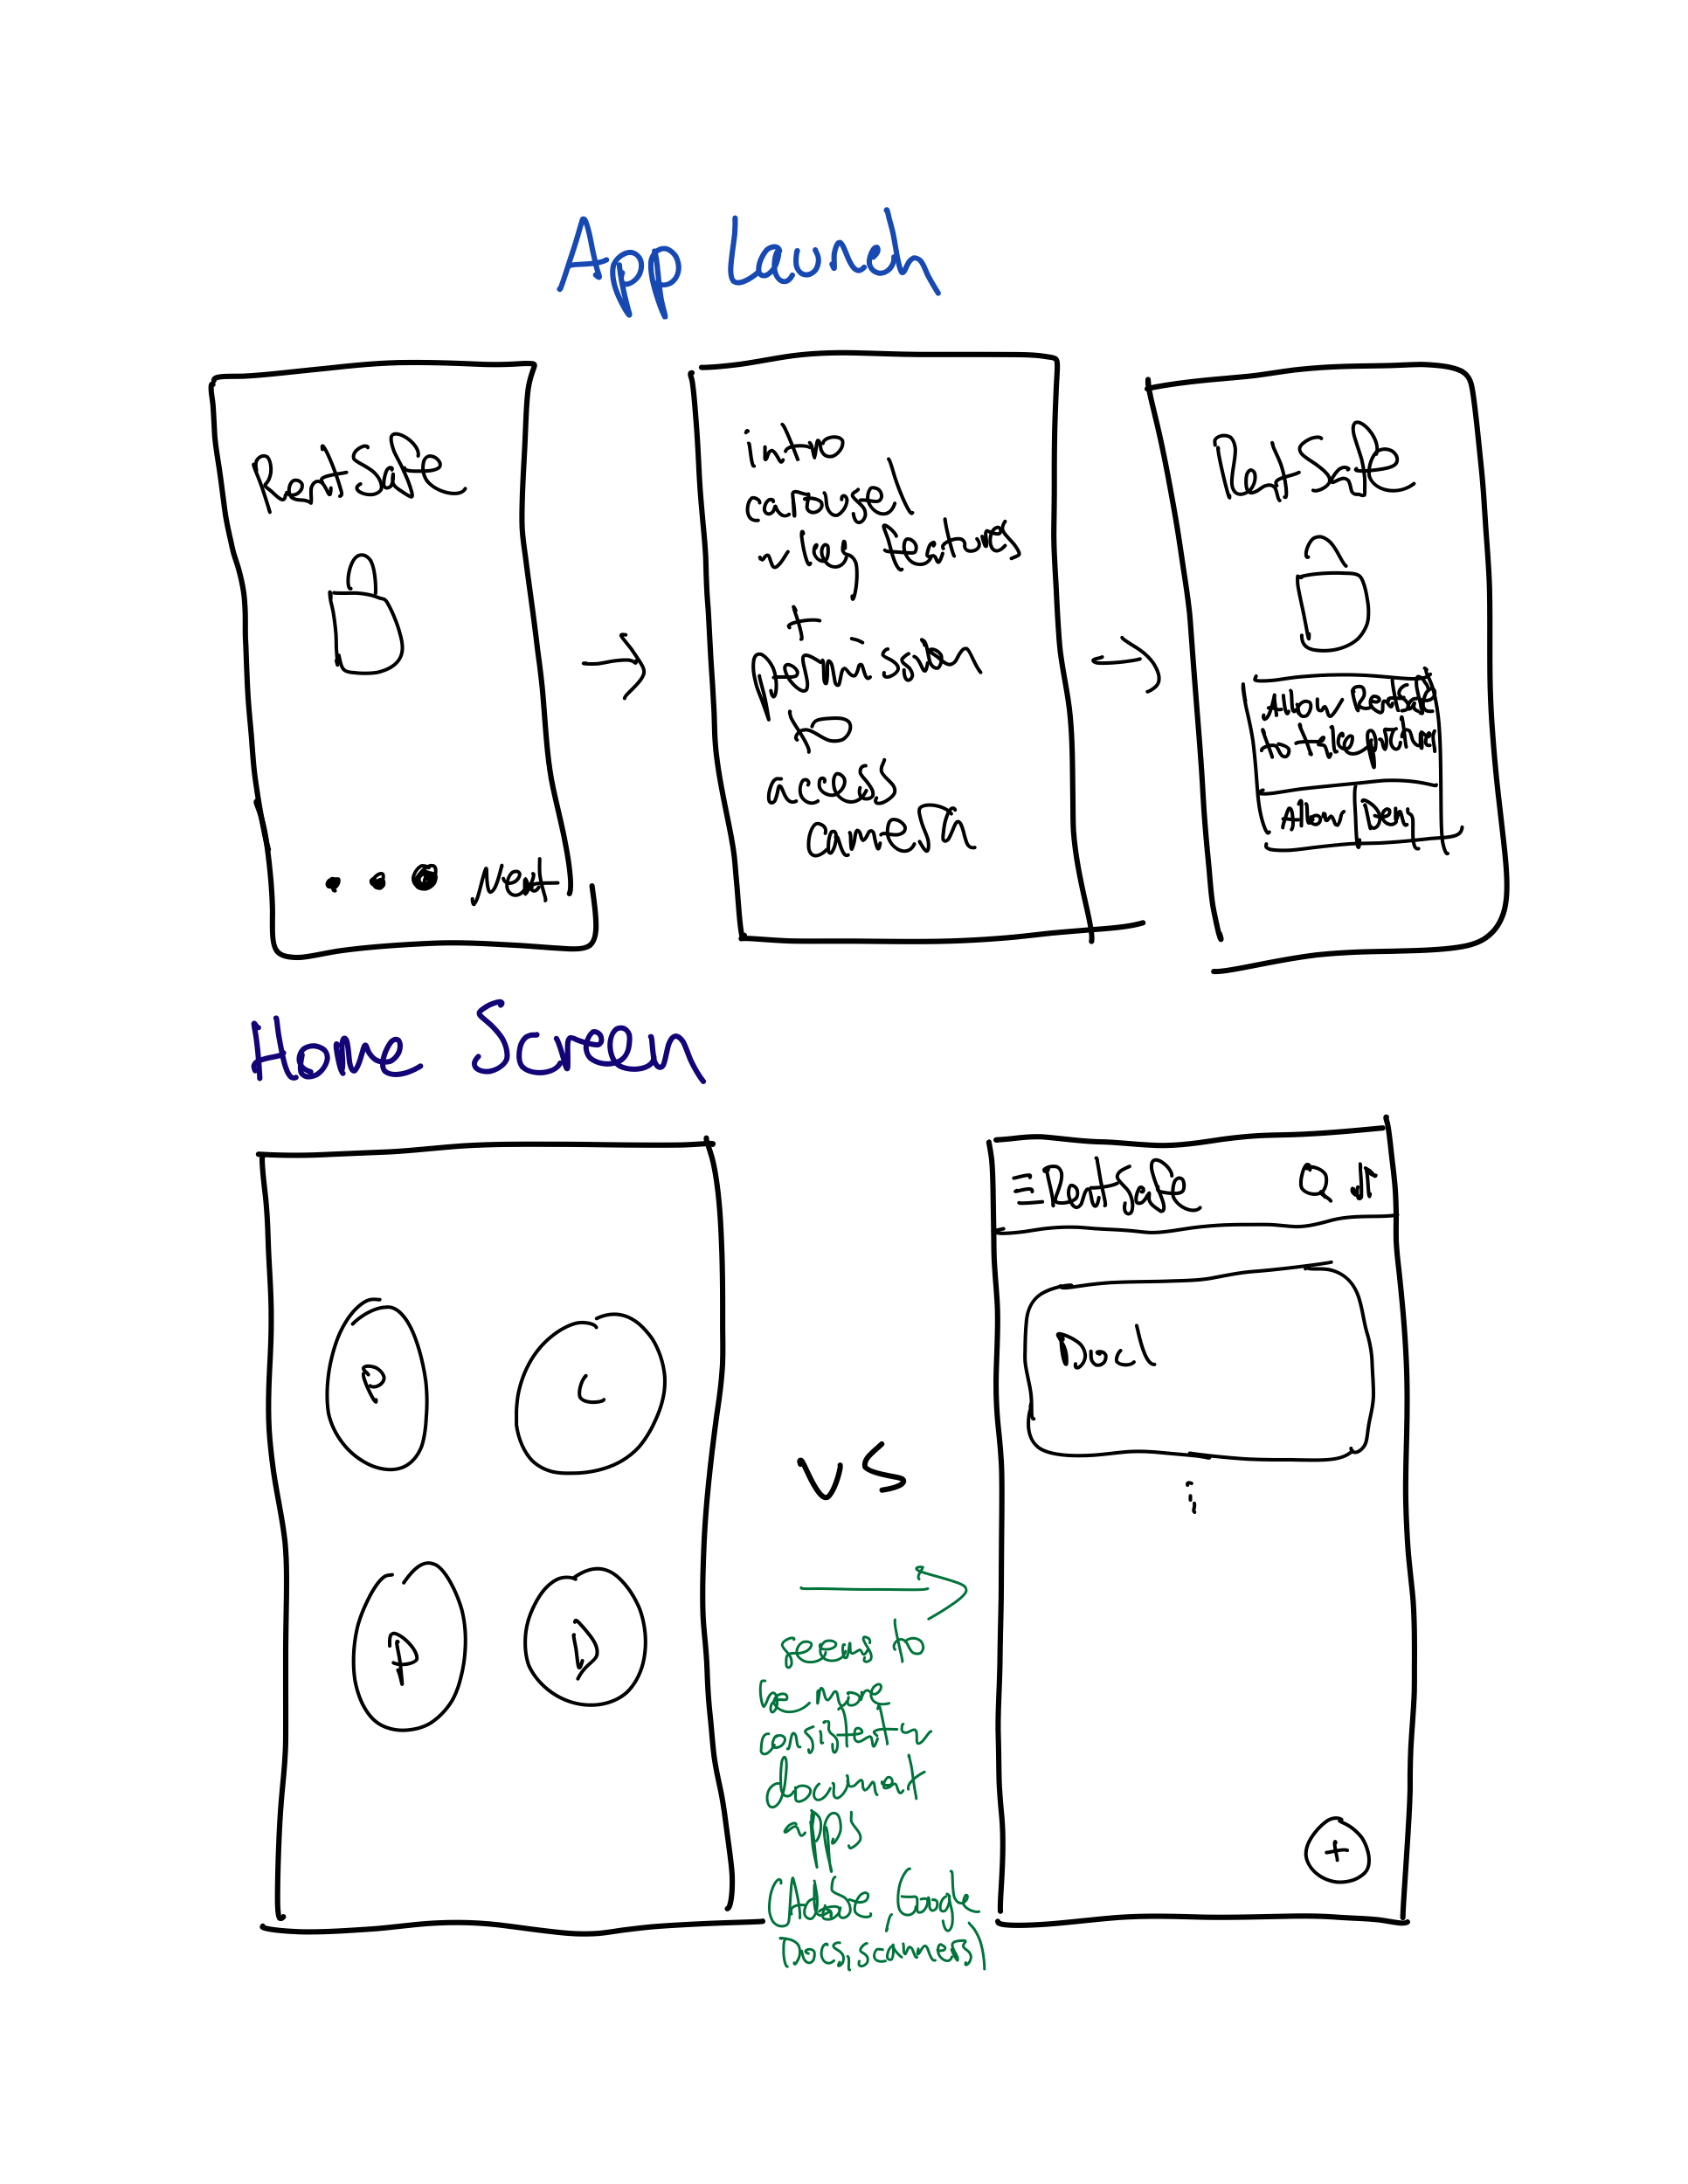 App Launch
RentSafe
Next
intro
carousel
w key features
+
permission
to
access
camera
RentSafe
Allow RentSafe
to take pictures
Allow Deny
Home Screen
P
C
P
D
vs
seems to
be more
consistent w
document
apps
(Adobe, Google
Docs, scanners)
RentSafe
Doc 1
+